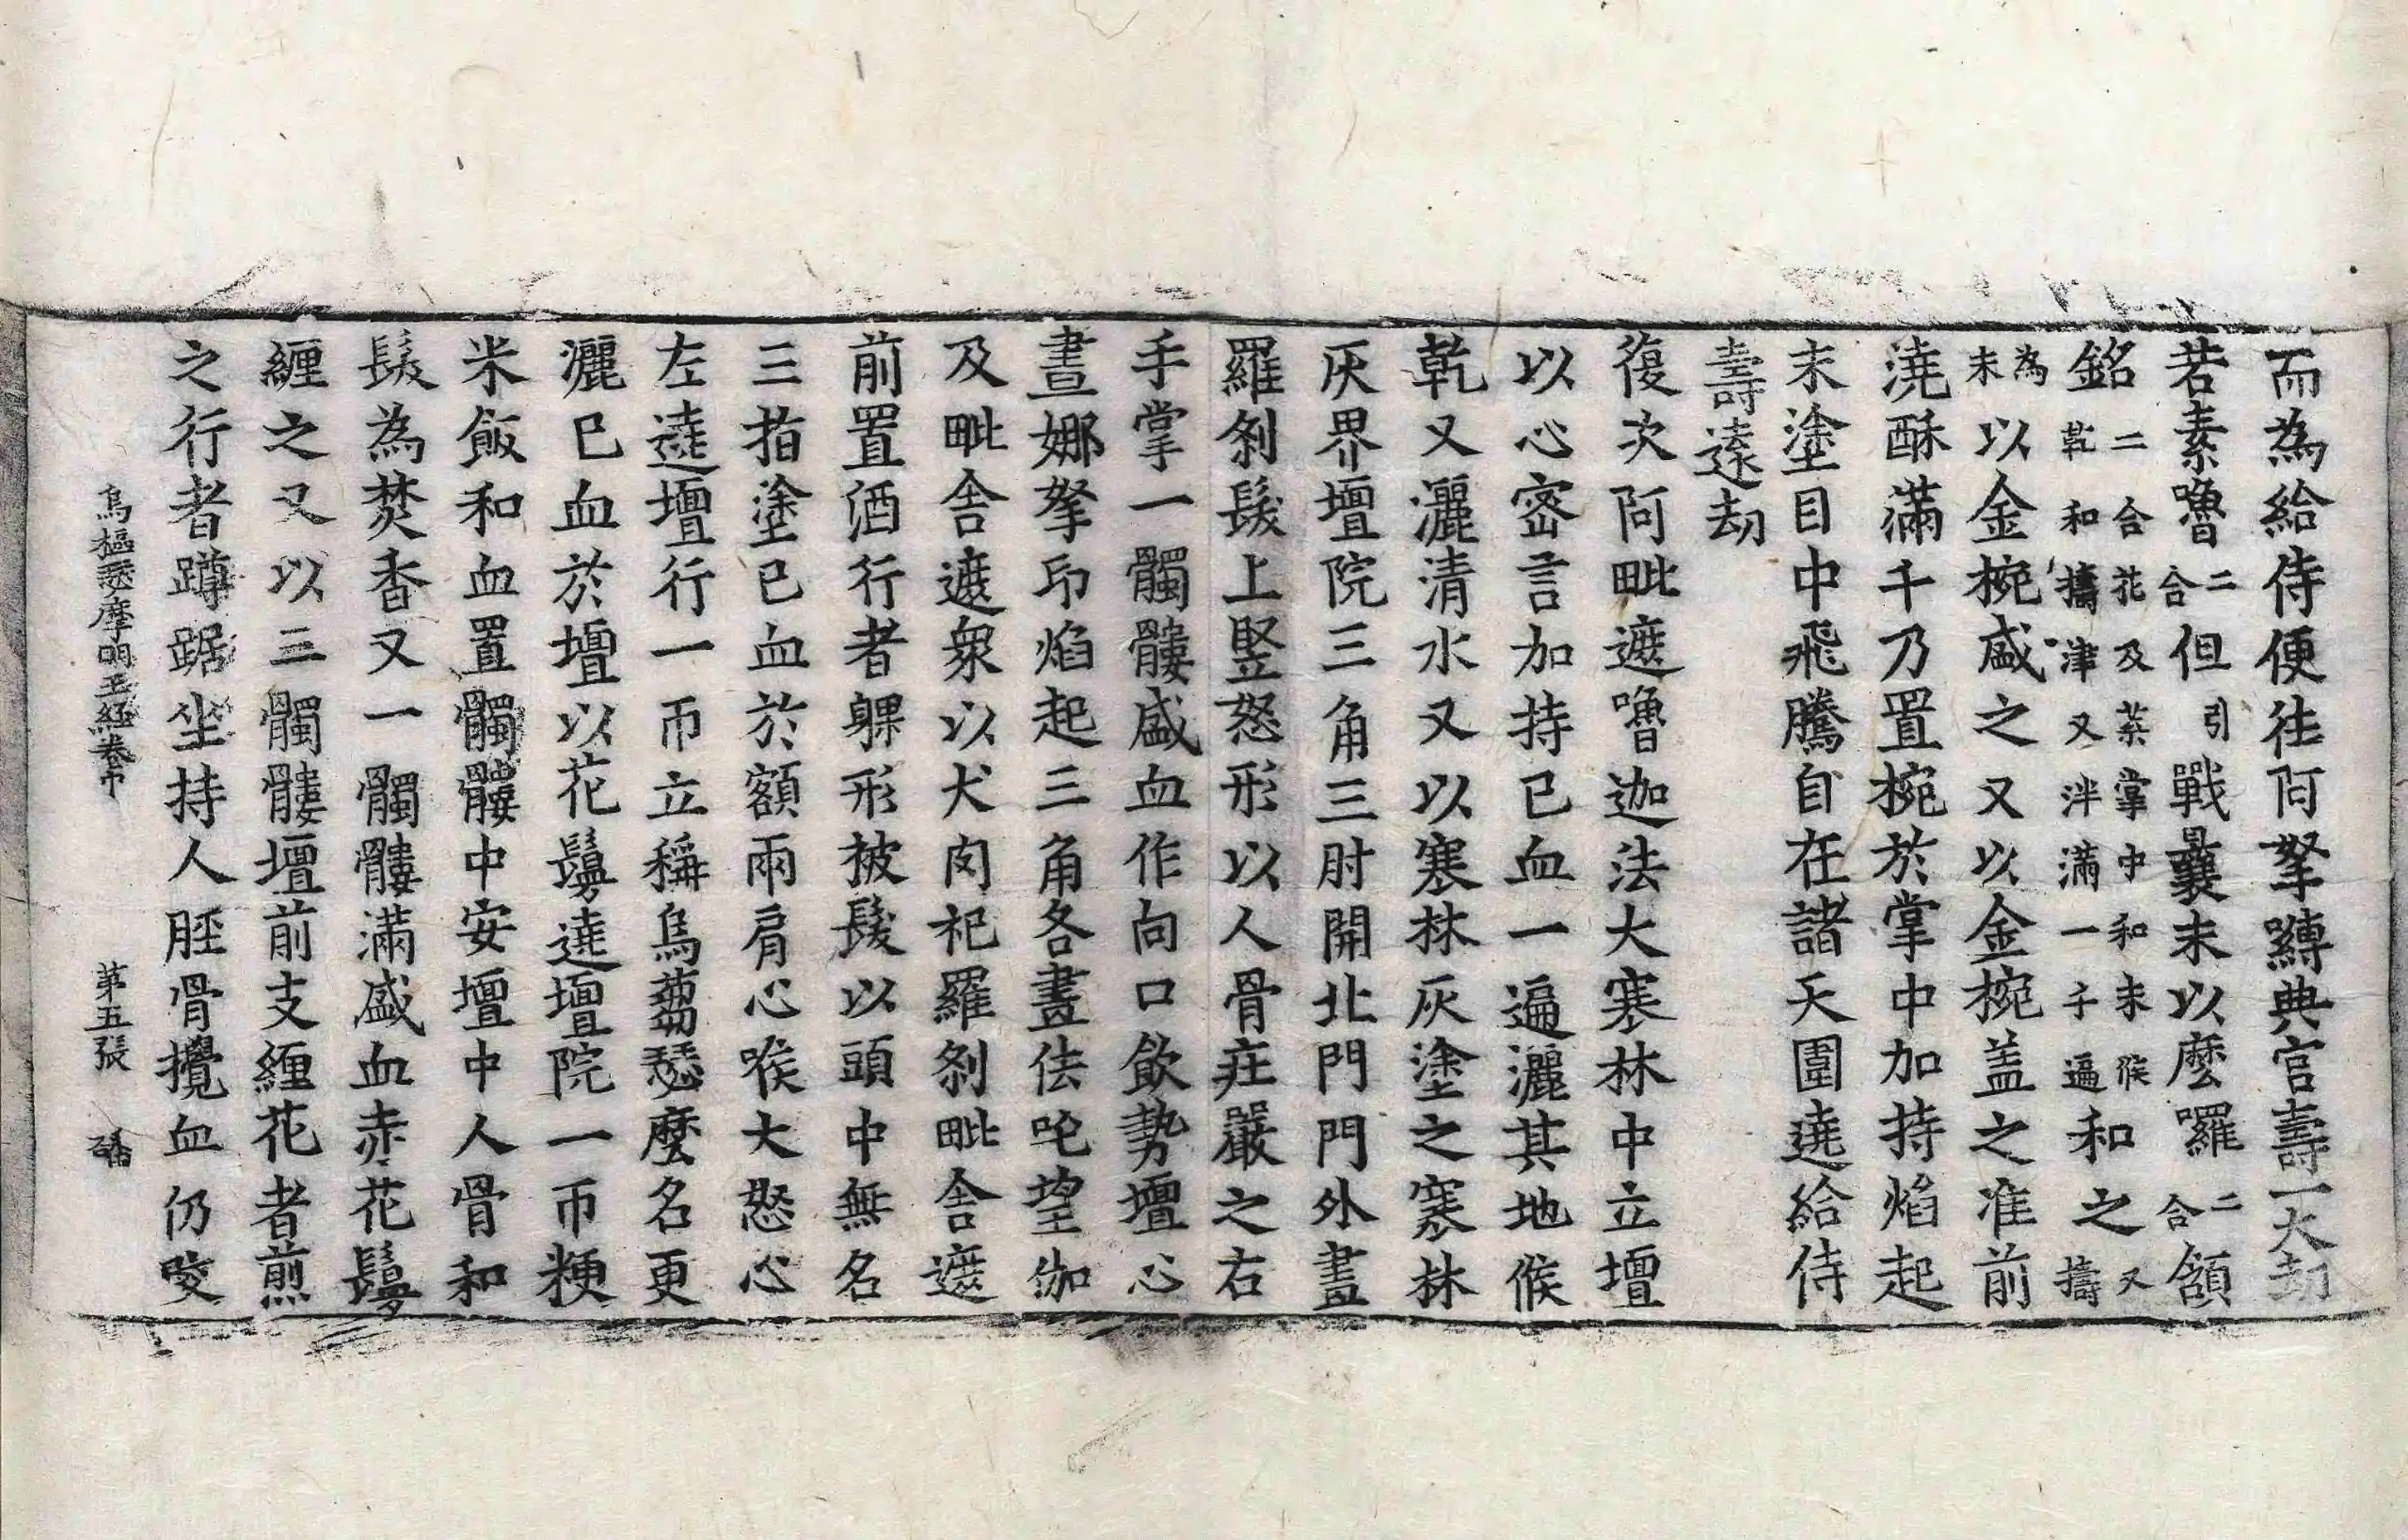 而為給侍便往阿拏嚩典官壽一大劫
若素嚕二合但引戰曩末以麼囉二合頷
銘二合花及蘂掌中和末候乾和擣津又泮滿一子遍和之又擣
為末以金椀盛之又以金椀盖之准前
澆酥滿千乃置椀於掌中加持焰起
末塗目中飛騰自在諸天圍遶給侍
壽遠劫
復次阿毗遮嚕迦法大塞林中立壇
以心密言加持已血一遍灑其地候
乾又灑清水又以塞林灰塗之塞林
灰界壇院三角三肘開北門門外畫
羅剎髮上竪怒形以人骨莊嚴之右
手掌一髑髏盛血作向口飲勢壇心
畫娜拏印焰起三角各畫佉吒望伽
及毗舍遮衆以犬肉祀羅剎毗舍遮
前置酒行者躶形披髮以頭中無名
三指塗已血於額兩肩心喉大怒心
左遶壇行一帀立稱烏蒭瑟麼名更
灑已血於壇以花鬘遶壇院一帀粳
米飯和血置髑髏中安壇中人骨和
髮為焚香又一髑髏滿盛血赤花鬘
纏之又以三髑髏壇前支纏花者煎
之行者蹲踞坐持人脛骨攪血仍咬
烏樞瑟摩明王經卷中 第五張